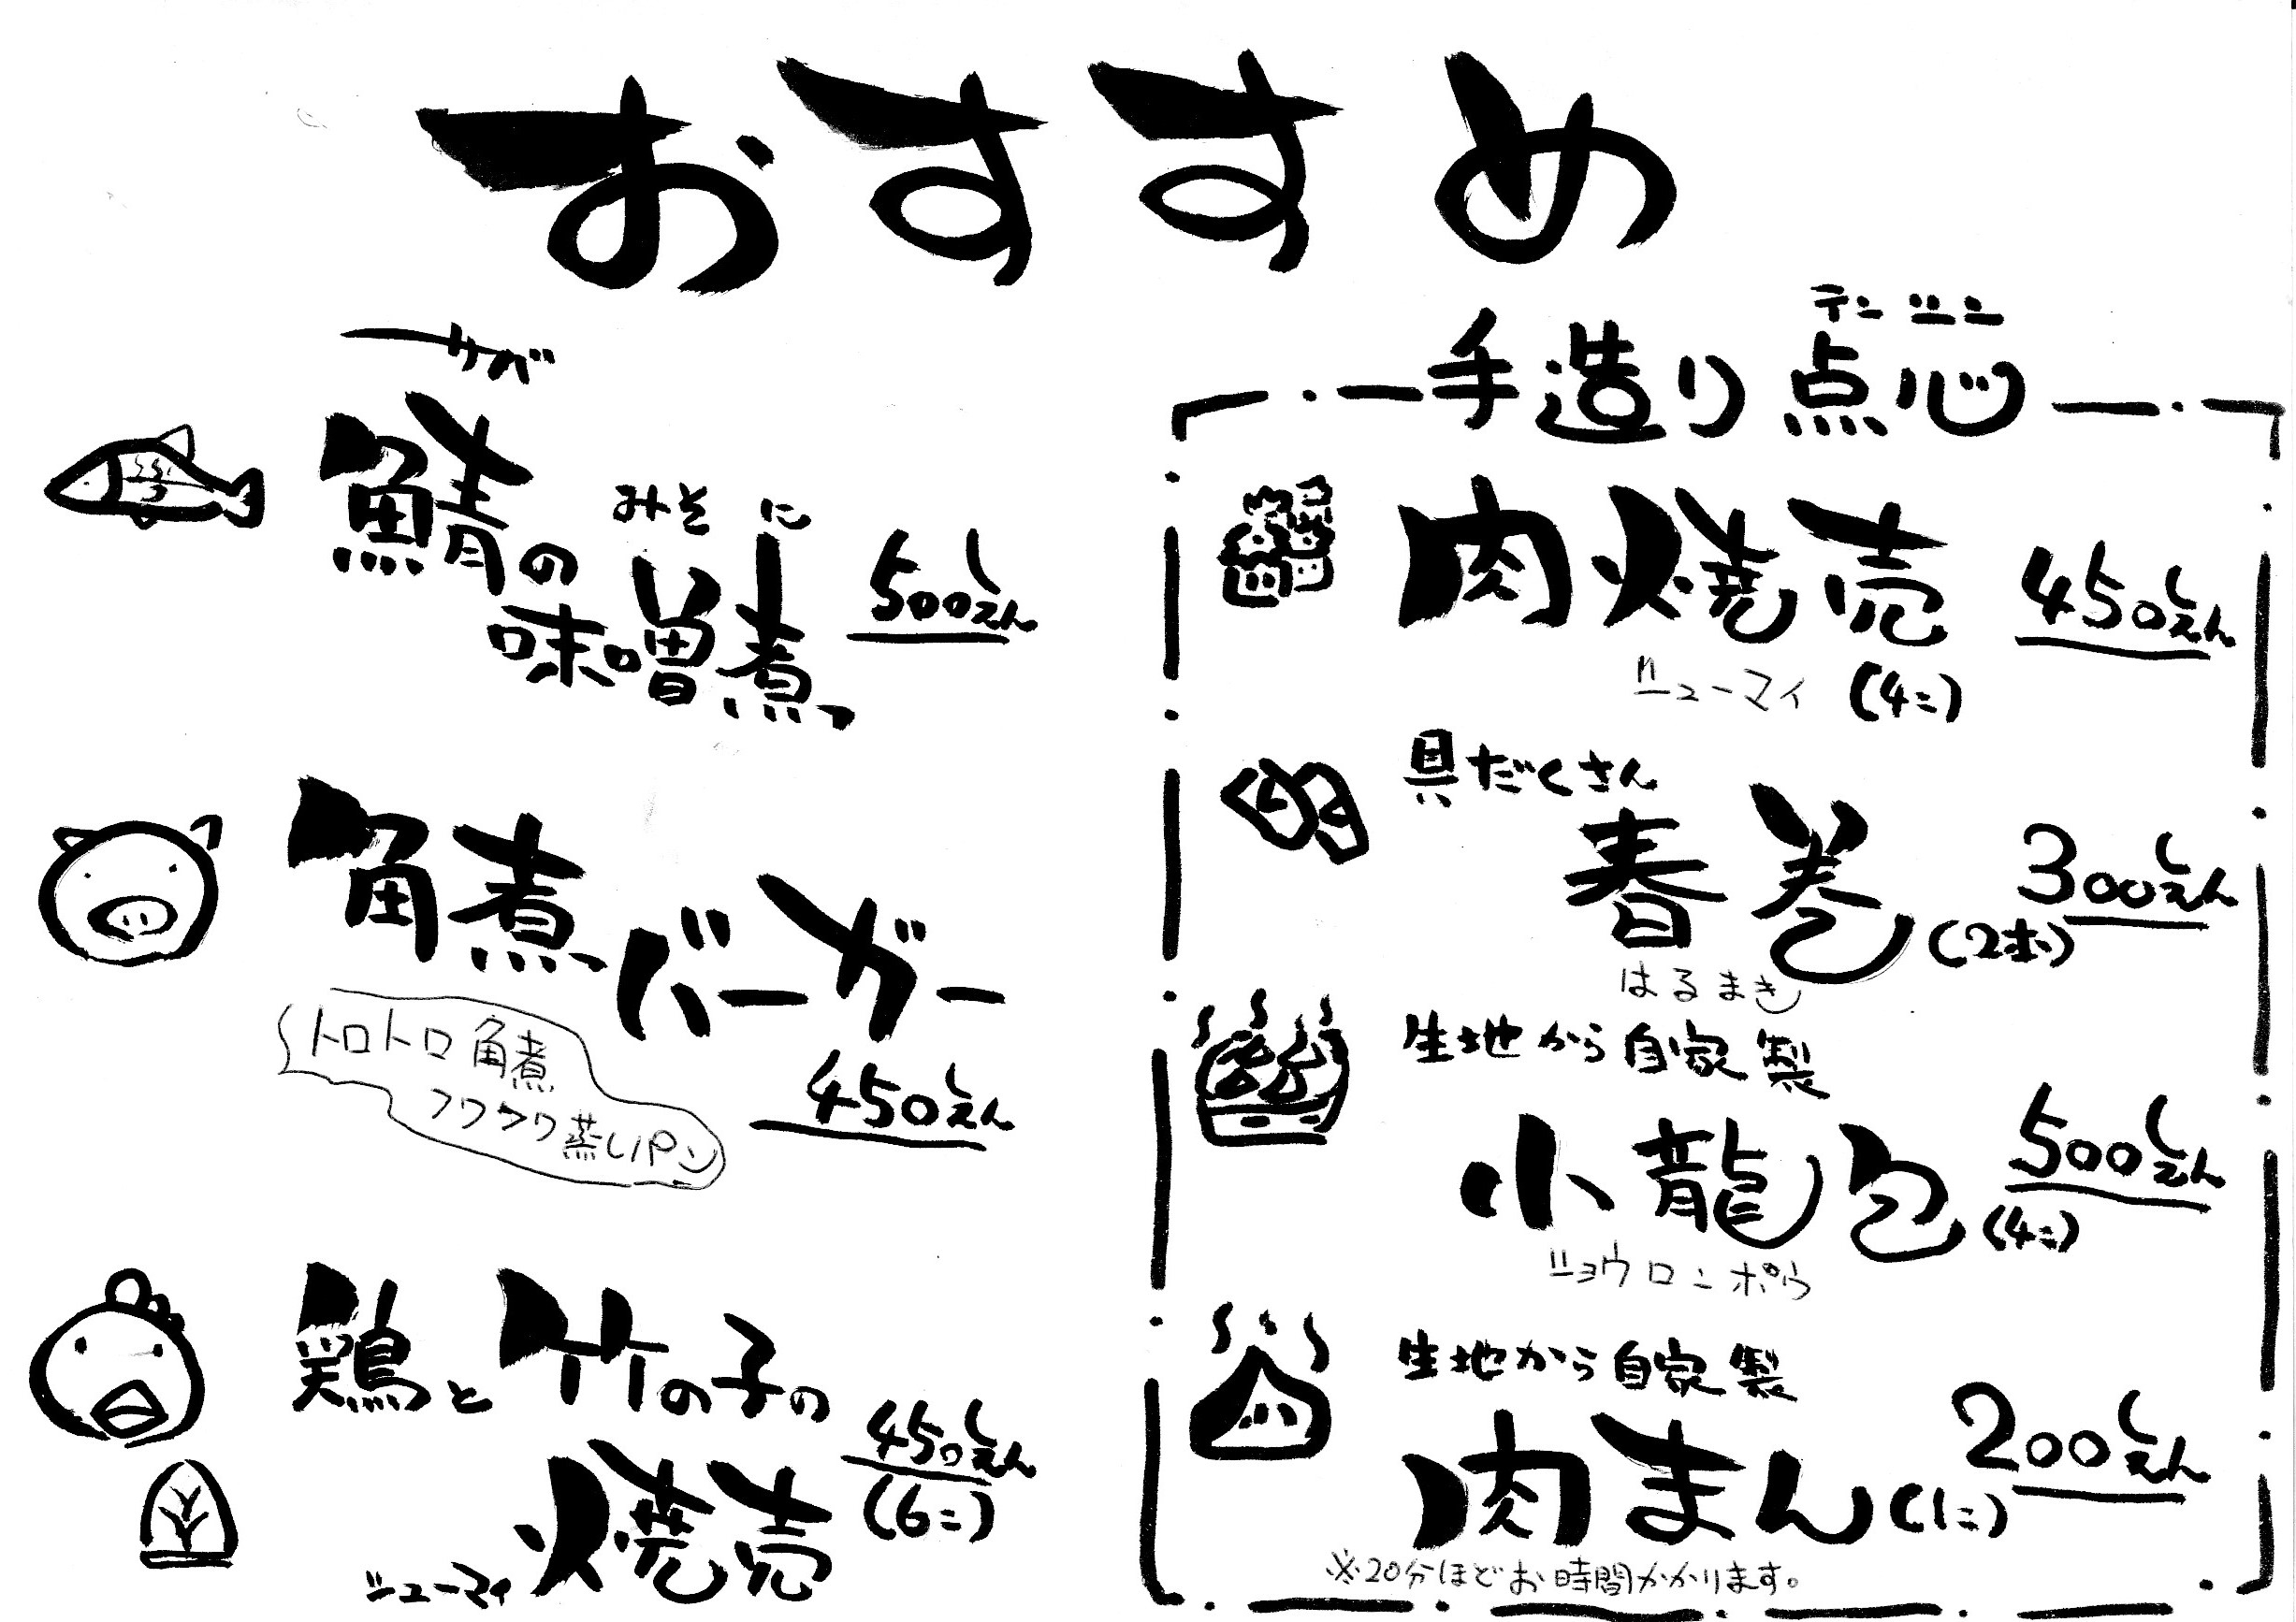 おすすめ
サバ
鯖の
みそ に
味噌煮
500えん
角煮バーガー
トロトロ角煮
フワフワ蒸しパン
450えん
鶏と竹の子の
シューマイ 焼売
450えん
(6コ)
テンシン
手造り点心
肉焼売
450えん
シューマイ (4コ)
具だくさん
春巻
300えん
(2本)
はるまき
生地から自家製
小龍包
500えん
(4コ)
ショウロンポウ
生地から自家製
肉まん(1コ)
200えん
※20分ほどお時間かかります。